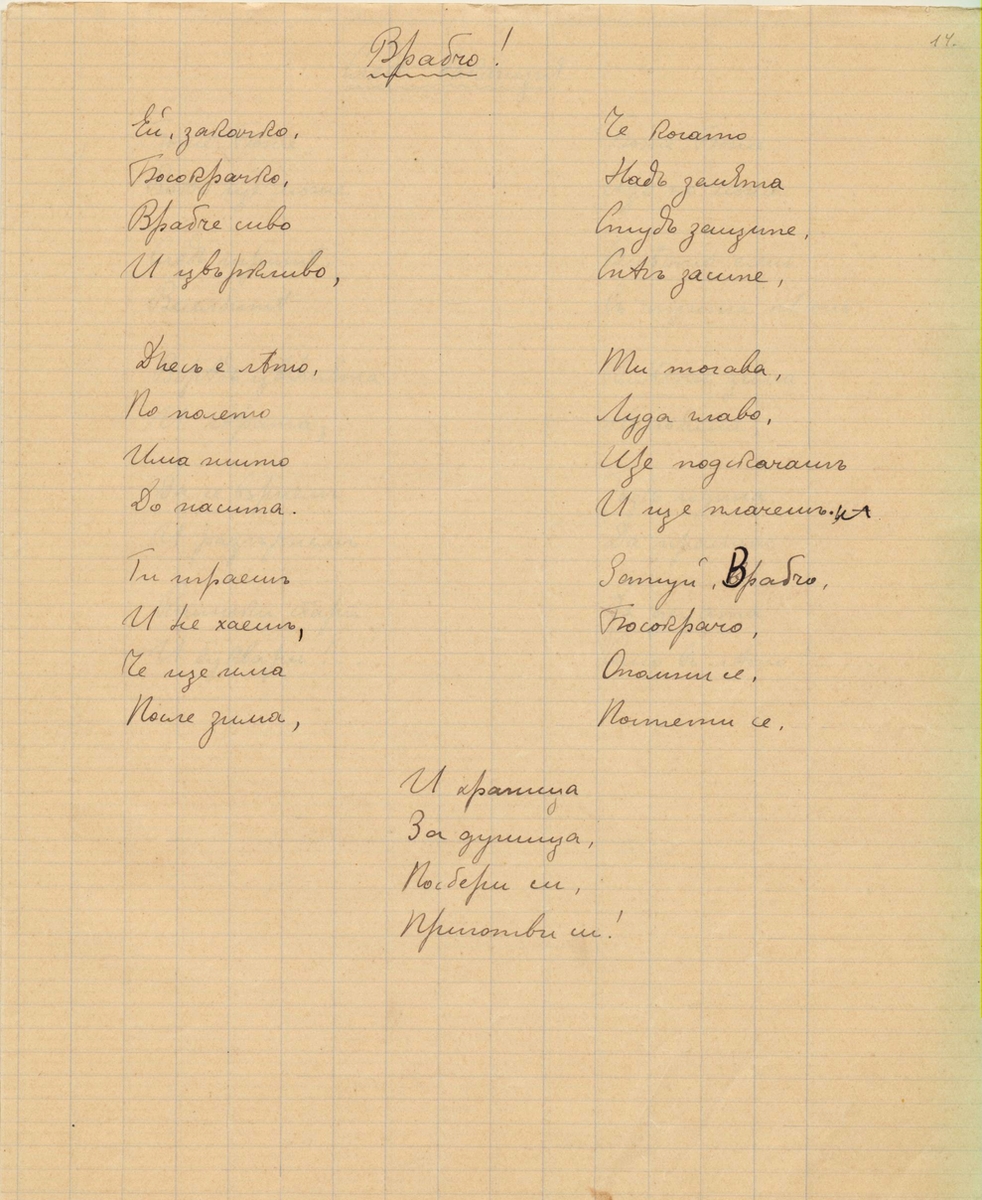 14.
Врабчо!
Ей, закачко,
Босокрачко,
Врабче сиво
И цвъркливо,
Днесь е лѣто,
По полето
Има жито
До насита.
Ти играешъ
И не хаешъ,
Че ще има
После зима,
Че когато
Надъ земята
Студъ защипе,
Снѣгъ засипе,
Ти тогава,
Луда главо,
Ще подскачашъ
И ще плачешъ.
Затуй, Врабчо,
Босокрачо,
Опомни се,
Постегни се,
И храница
За душица,
Посбери си,
Приготви си!